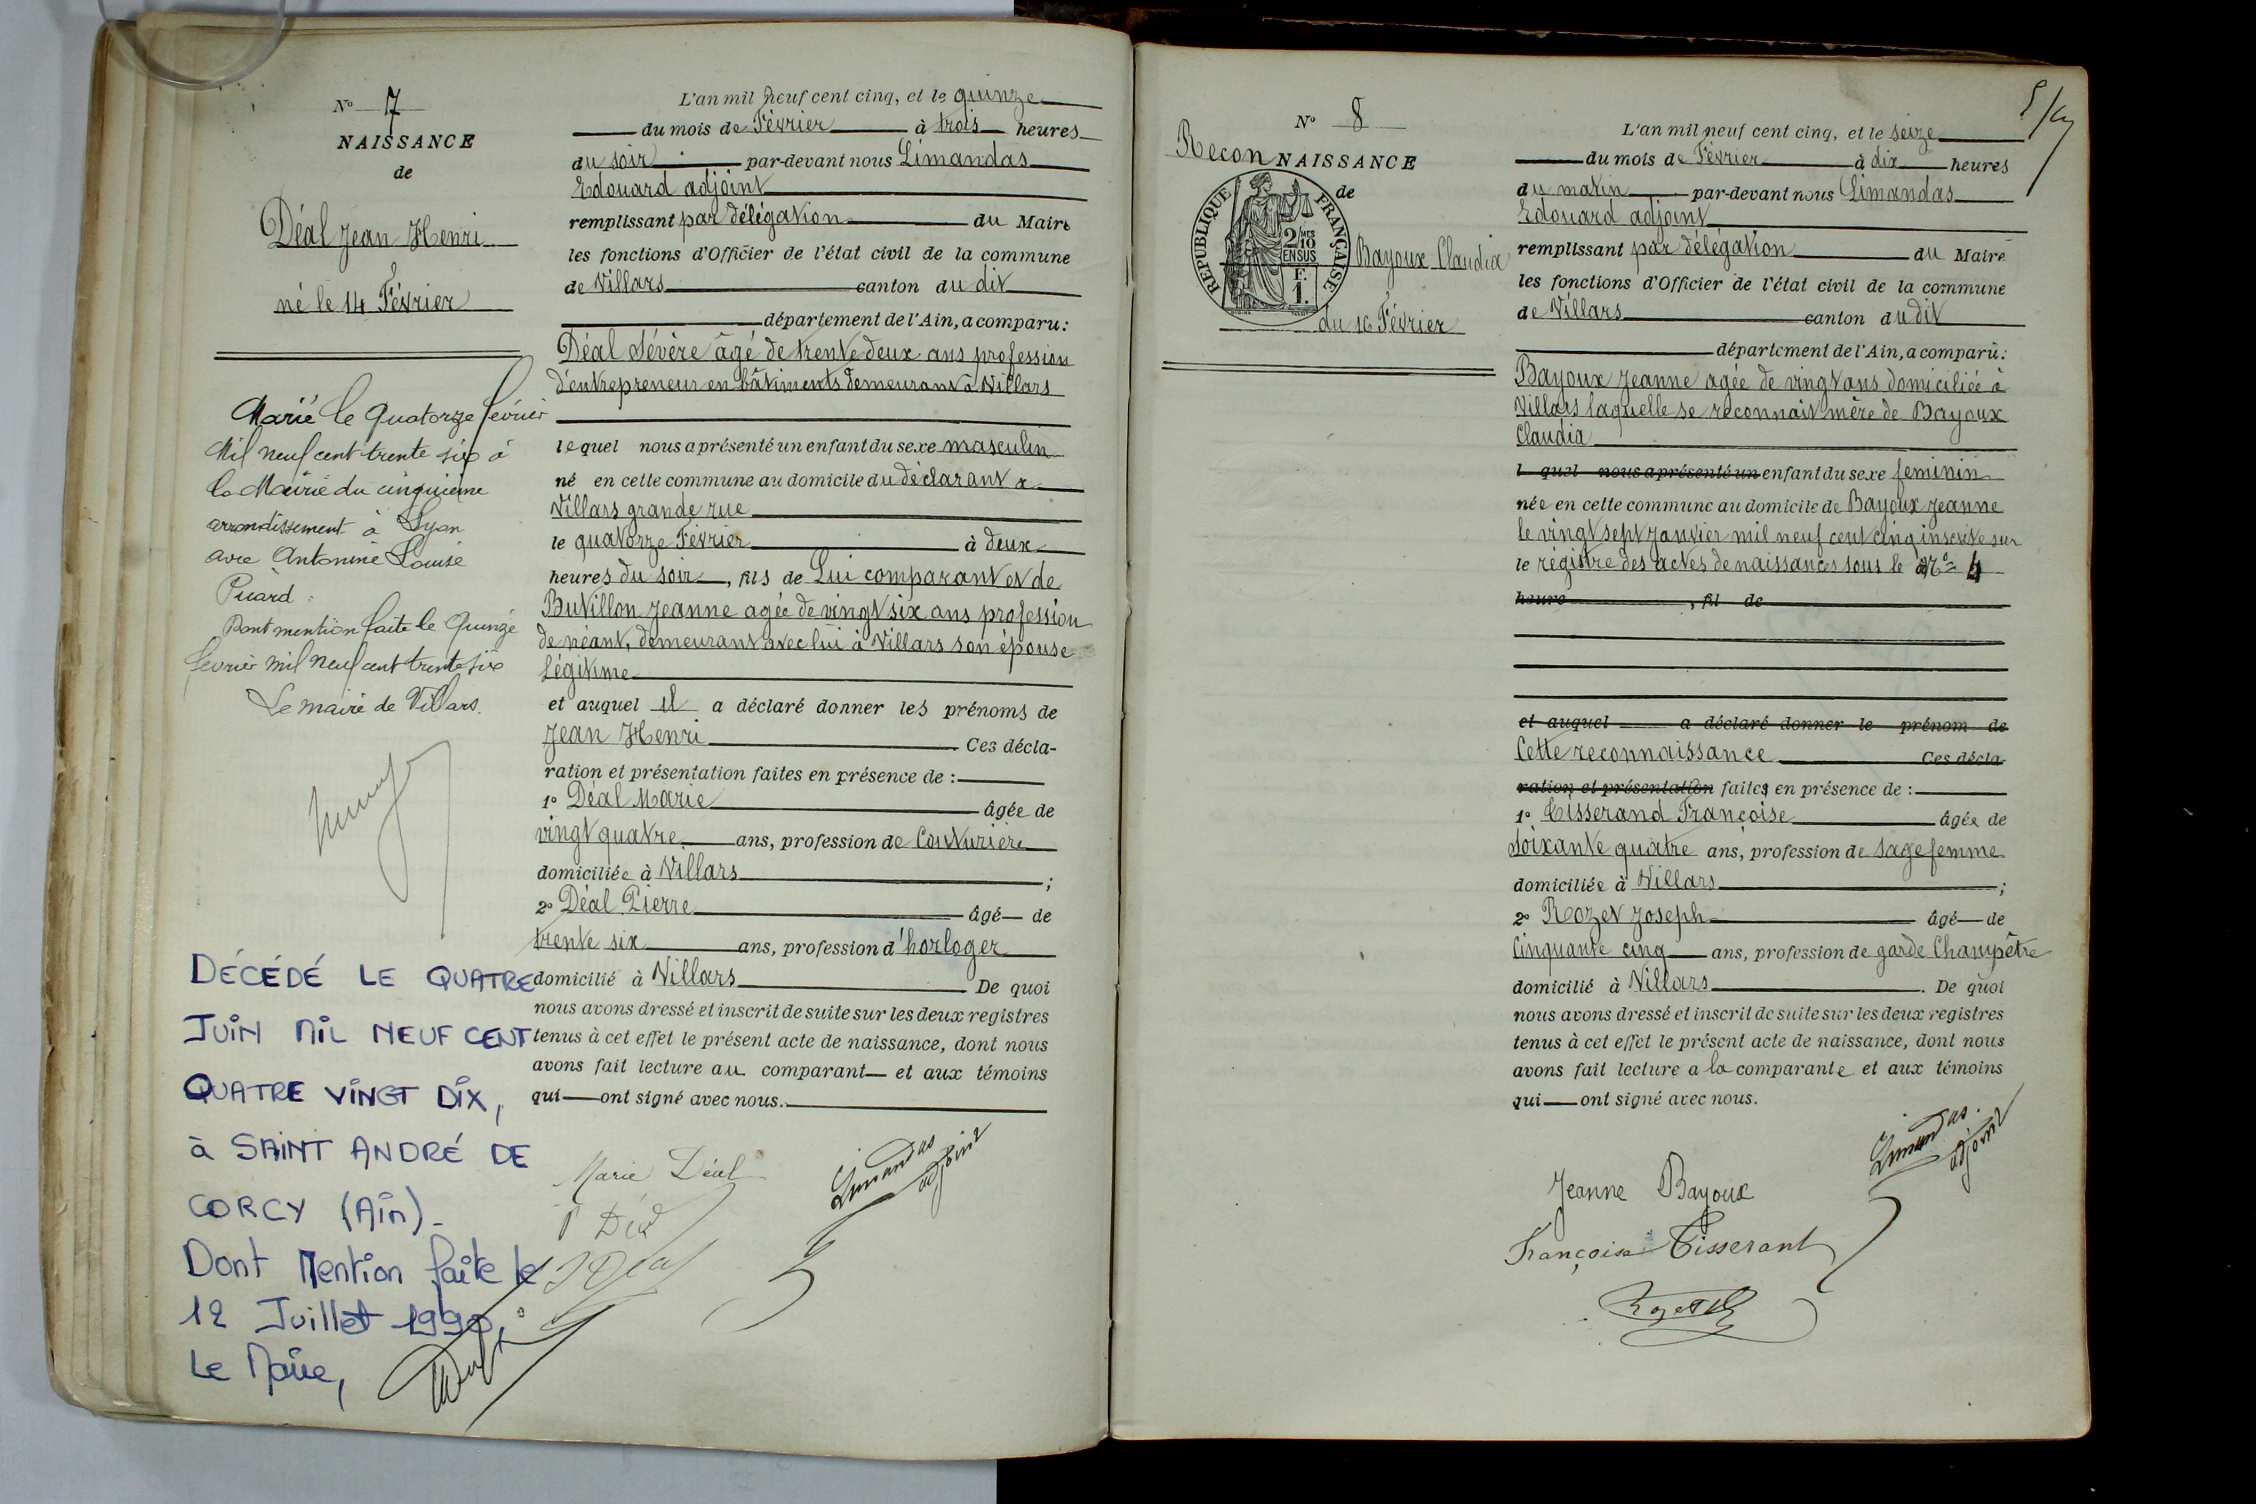 N° 7
NAISSANCE
de
Déal Jean Henri
né le 14 Février
Marié le Quatorze février
Mil neuf cent trente six à
la Mairie du cinquième
arrondissement à Lyon
avec Antonine Louise
Picard.
Dont mention faite le Quinze
février mil neuf cent trente six
Le maire de Villars.
DÉCÉDÉ LE QUATRE
JUIN MIL NEUF CENT
QUATRE VINGT DIX,
à SAINT ANDRÉ DE
CORCY (Ain)_
Dont Mention faite le
12 Juillet 1990.
Le Maire,
L'an mil neuf cent cinq, et le quinze
du mois de Février à trois heures
du soir par-devant nous Limandas
Edouard adjoint
remplissant par délégation du Maire
les fonctions d'Officier de l'état civil de la commune
de Villars canton du dit
département de l'Ain, a comparu:
Déal Sévère âgé de trente deux ans profession
d'entrepreneur en bâtiments demeurant à Villars
lequel nous a présenté un enfant du sexe masculin
né en cette commune au domicile du déclarant a
Villars grande rue
le quatorze Février à deux
heures du soir, fils de Lui comparant et de
Butillon Jeanne agée de vingt six ans profession
de néant, demeurant avec lui à Villars son épouse
légitime
et auquel il a déclaré donner les prénoms de
Jean Henri Ces décla-
ration et présentation faites en présence de :
1° Déal Marie âgée de
vingt quatre ans, profession de Couturière
domiciliée à Villars ;
2° Déal Pierre âgé de
trente six ans, profession d'horloger
domicilié à Villars De quoi
nous avons dressé et inscrit de suite sur les deux registres
tenus à cet effet le présent acte de naissance, dont nous
avons fait lecture au comparant et aux témoins
qui ont signé avec nous.
Marie Déal
Limandas
adjoint
P Déal
S Déal
5/
N° 8
Recon NAISSANCE
de
REPUBLIQUE FRANÇAISE
2/10 MES
EN SUS
F.
1.
Bayoux Claudia
du 16 Février
L'an mil neuf cent cinq, et le seize
du mois de Février à dix heures
du matin par-devant nous Limandas
Edouard adjoint
remplissant par délégation du Maire
les fonctions d'Officier de l'état civil de la commune
de Villars canton du dit
département de l'Ain, a comparu:
Bayoux Jeanne agée de vingt ans domiciliée à
Villars laquelle se reconnait mère de Bayoux
Claudia
l quel nous a présenté un enfant du sexe feminin
née en cette commune au domicile de Bayoux Jeanne
le vingt sept Janvier mil neuf cent cinq inscrite sur
le régistre des actes de naissances sous le N° 4
heure , fil de
et auquel a déclaré donner le prénom de
Cette reconnaissance Ces décla
ration et présentation faites en présence de :
1° Tisserand Françoise âgée de
soixante quatre ans, profession de sage femme
domiciliée à Villars ;
2° Rozet Joseph âgé de
Cinquante cinq ans, profession de garde Champêtre
domicilié à Villars . De quoi
nous avons dressé et inscrit de suite sur les deux registres
tenus à cet effet le présent acte de naissance, dont nous
avons fait lecture a la comparante et aux témoins
qui ont signé avec nous.
Limandas.
adjoint
Jeanne Bayoux
Françoise Tisserant
Rozet